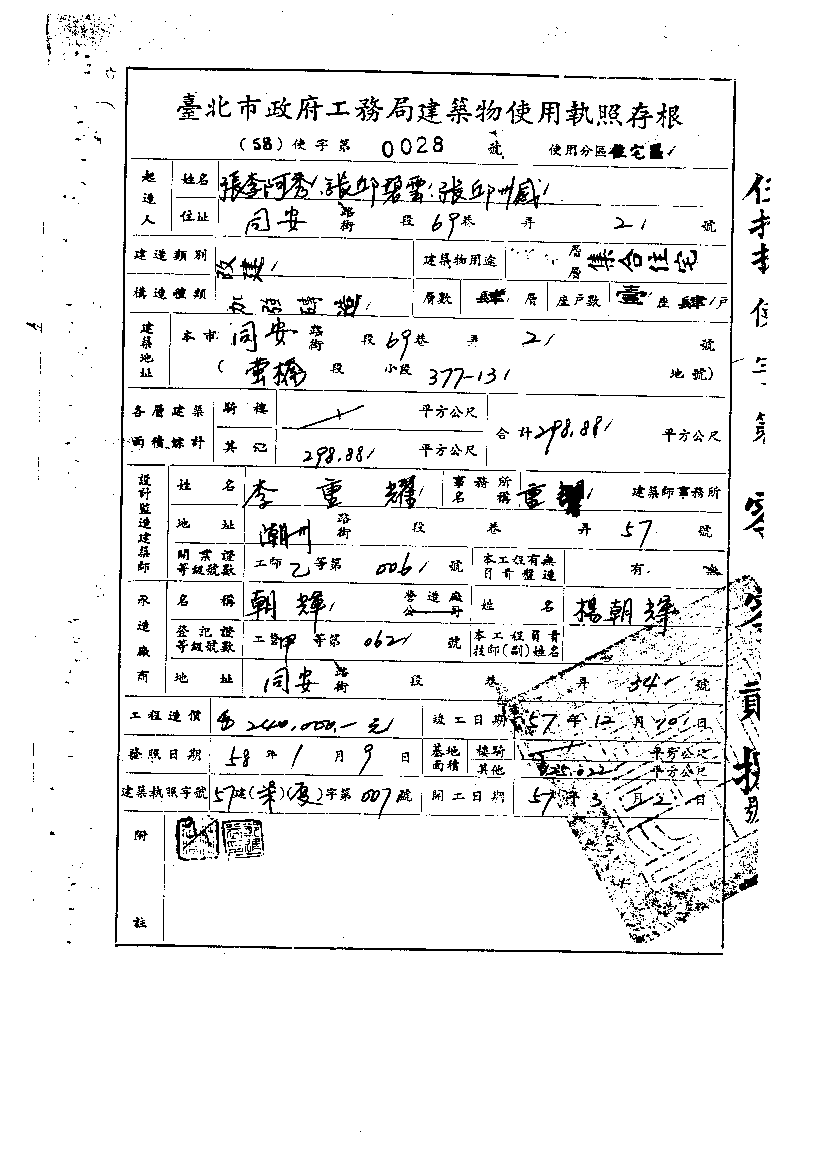 臺北市政府工務局建築物使用執照存根
(58)使字第 0028 號 使用分區住宅區
起造人 姓名 張李阿秀 張邱碧雲 張邱
住址 同安 路街 段 69巷 弄 21 號
建造類別 改建 建築物用途 層層 集合住宅
構造種類 加強磚造 層數 肆 層 座戶數 壹 座 肆 戶
建築地址 本市 同安 路街 段 69巷 弄 21 號
(螢橋 段 小段 377-131 地號)
各層建築面積總計 騎樓 平方公尺 合計298.88 平方公尺
其他 298.88 平方公尺
設計監造建築師 姓名 李重耀 事務所名稱 重耀 建築師事務所
地址 潮州 路街 段 巷 弄 57 號
開業證等級號數 工師乙等第 006 號 本工程有無負責監造 有 無
承造廠商 名稱 朝輝 營造廠公司 姓名 楊朝輝
登記證等級號數 工營甲等第 062 號 本工程負責技師(副)姓名
地址 同安 路街 段 巷 弄 34 號
工程造價 240,000.-元 竣工日期 57年12月20日
發照日期 58年1月9日 基地面積 樓騎 平方公尺
其他 平方公尺
建築執照字號 57建( )( )字第007號 開工日期 57年3月2日
附註
使字第零零貳捌號